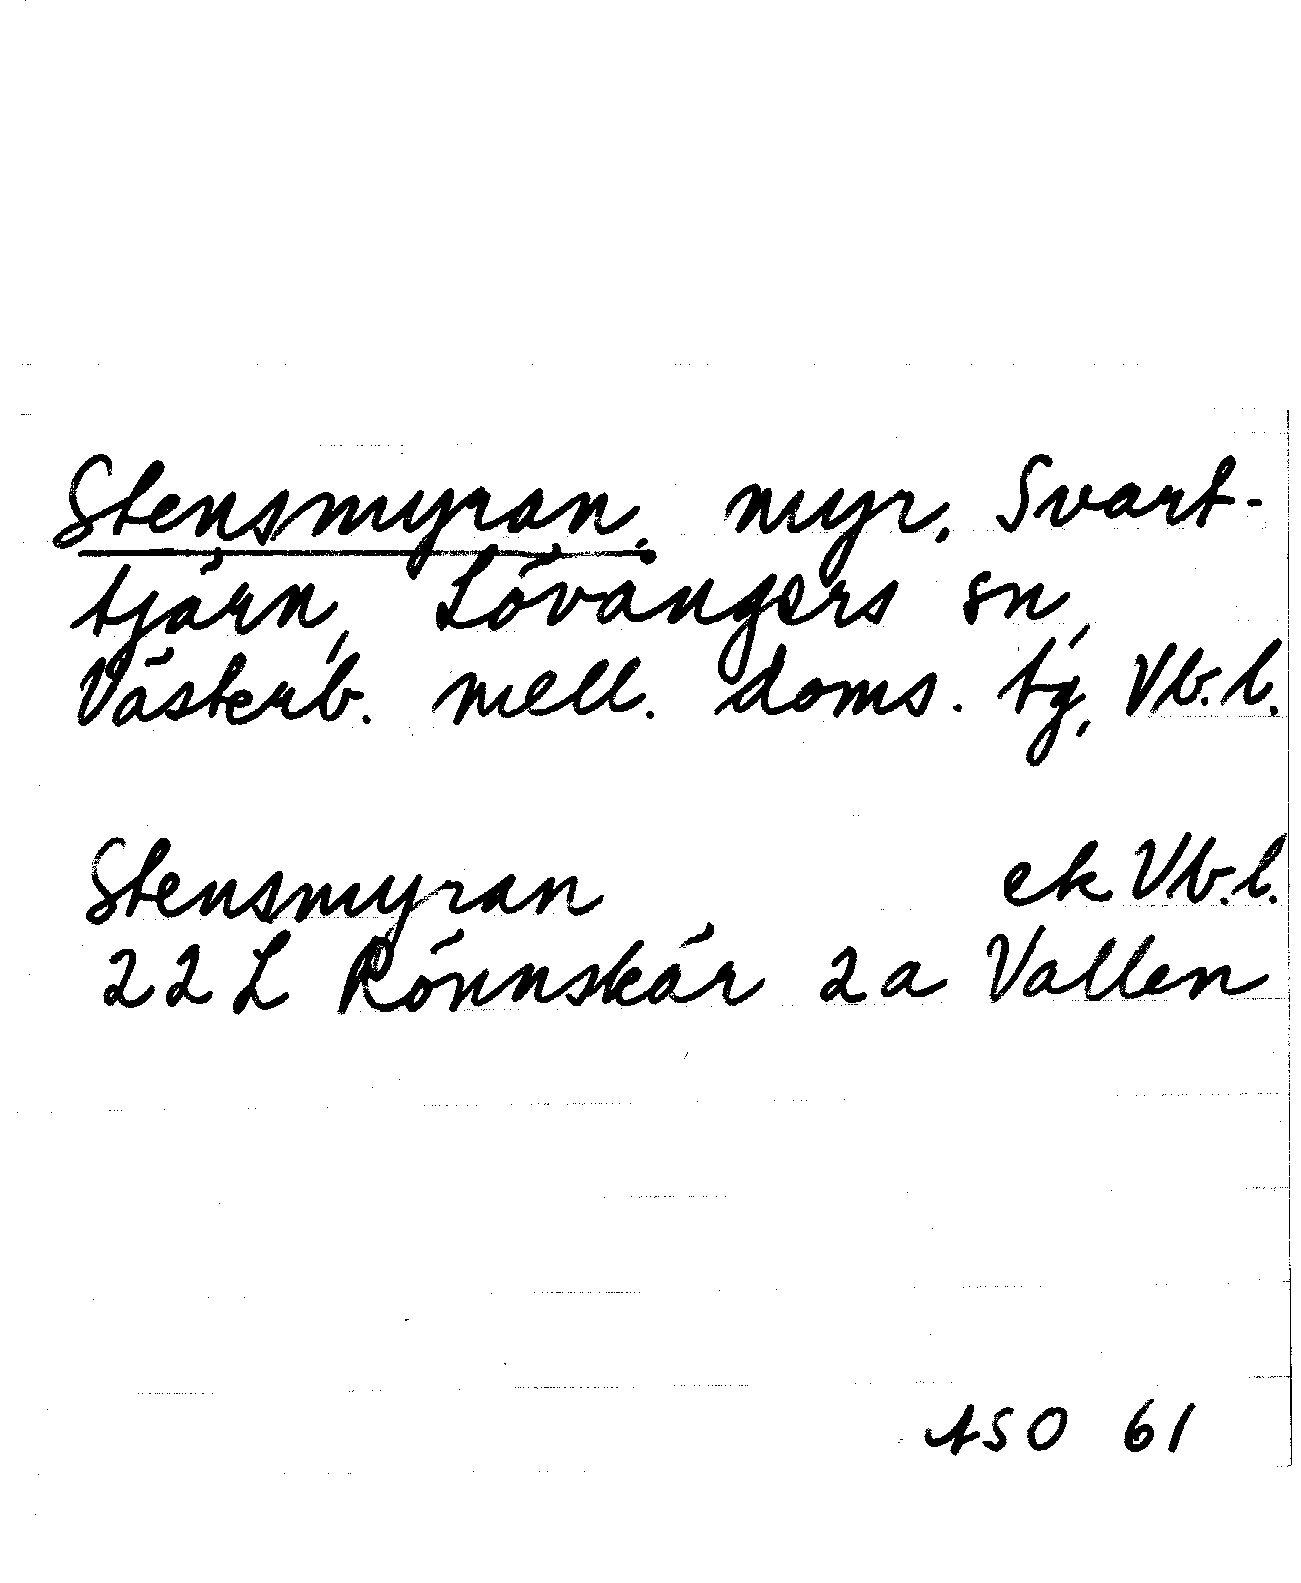 Stensmyran, myr, Svart-
tjärn, Lövångers sn,
Västerb. mell. doms. tg, Vb. l.
Stensmyran ek Vb. l.
22 L Rönnskär 2a Vallen
ASO 61